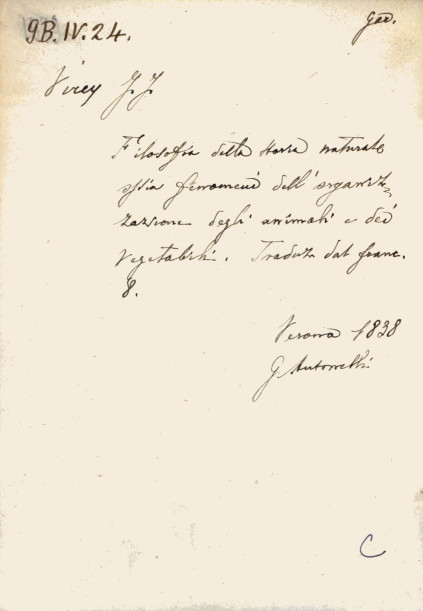 9B.IV.24.
Geo.
Virey J. J.
Filosofia della storia naturale
ossia fenomeni dell'organiz=
zazione degli animali e dei
vegetabili. Traduz. dal franc.
8.
Verona 1838
G. Antonelli
C